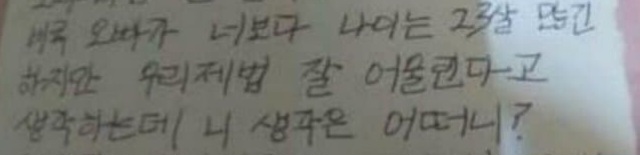 비록 오빠가 너보다 나이는 23살 많긴
하지만 우리 제법 잘 어울린다고
생각하는데 니 생각은 어떠니?